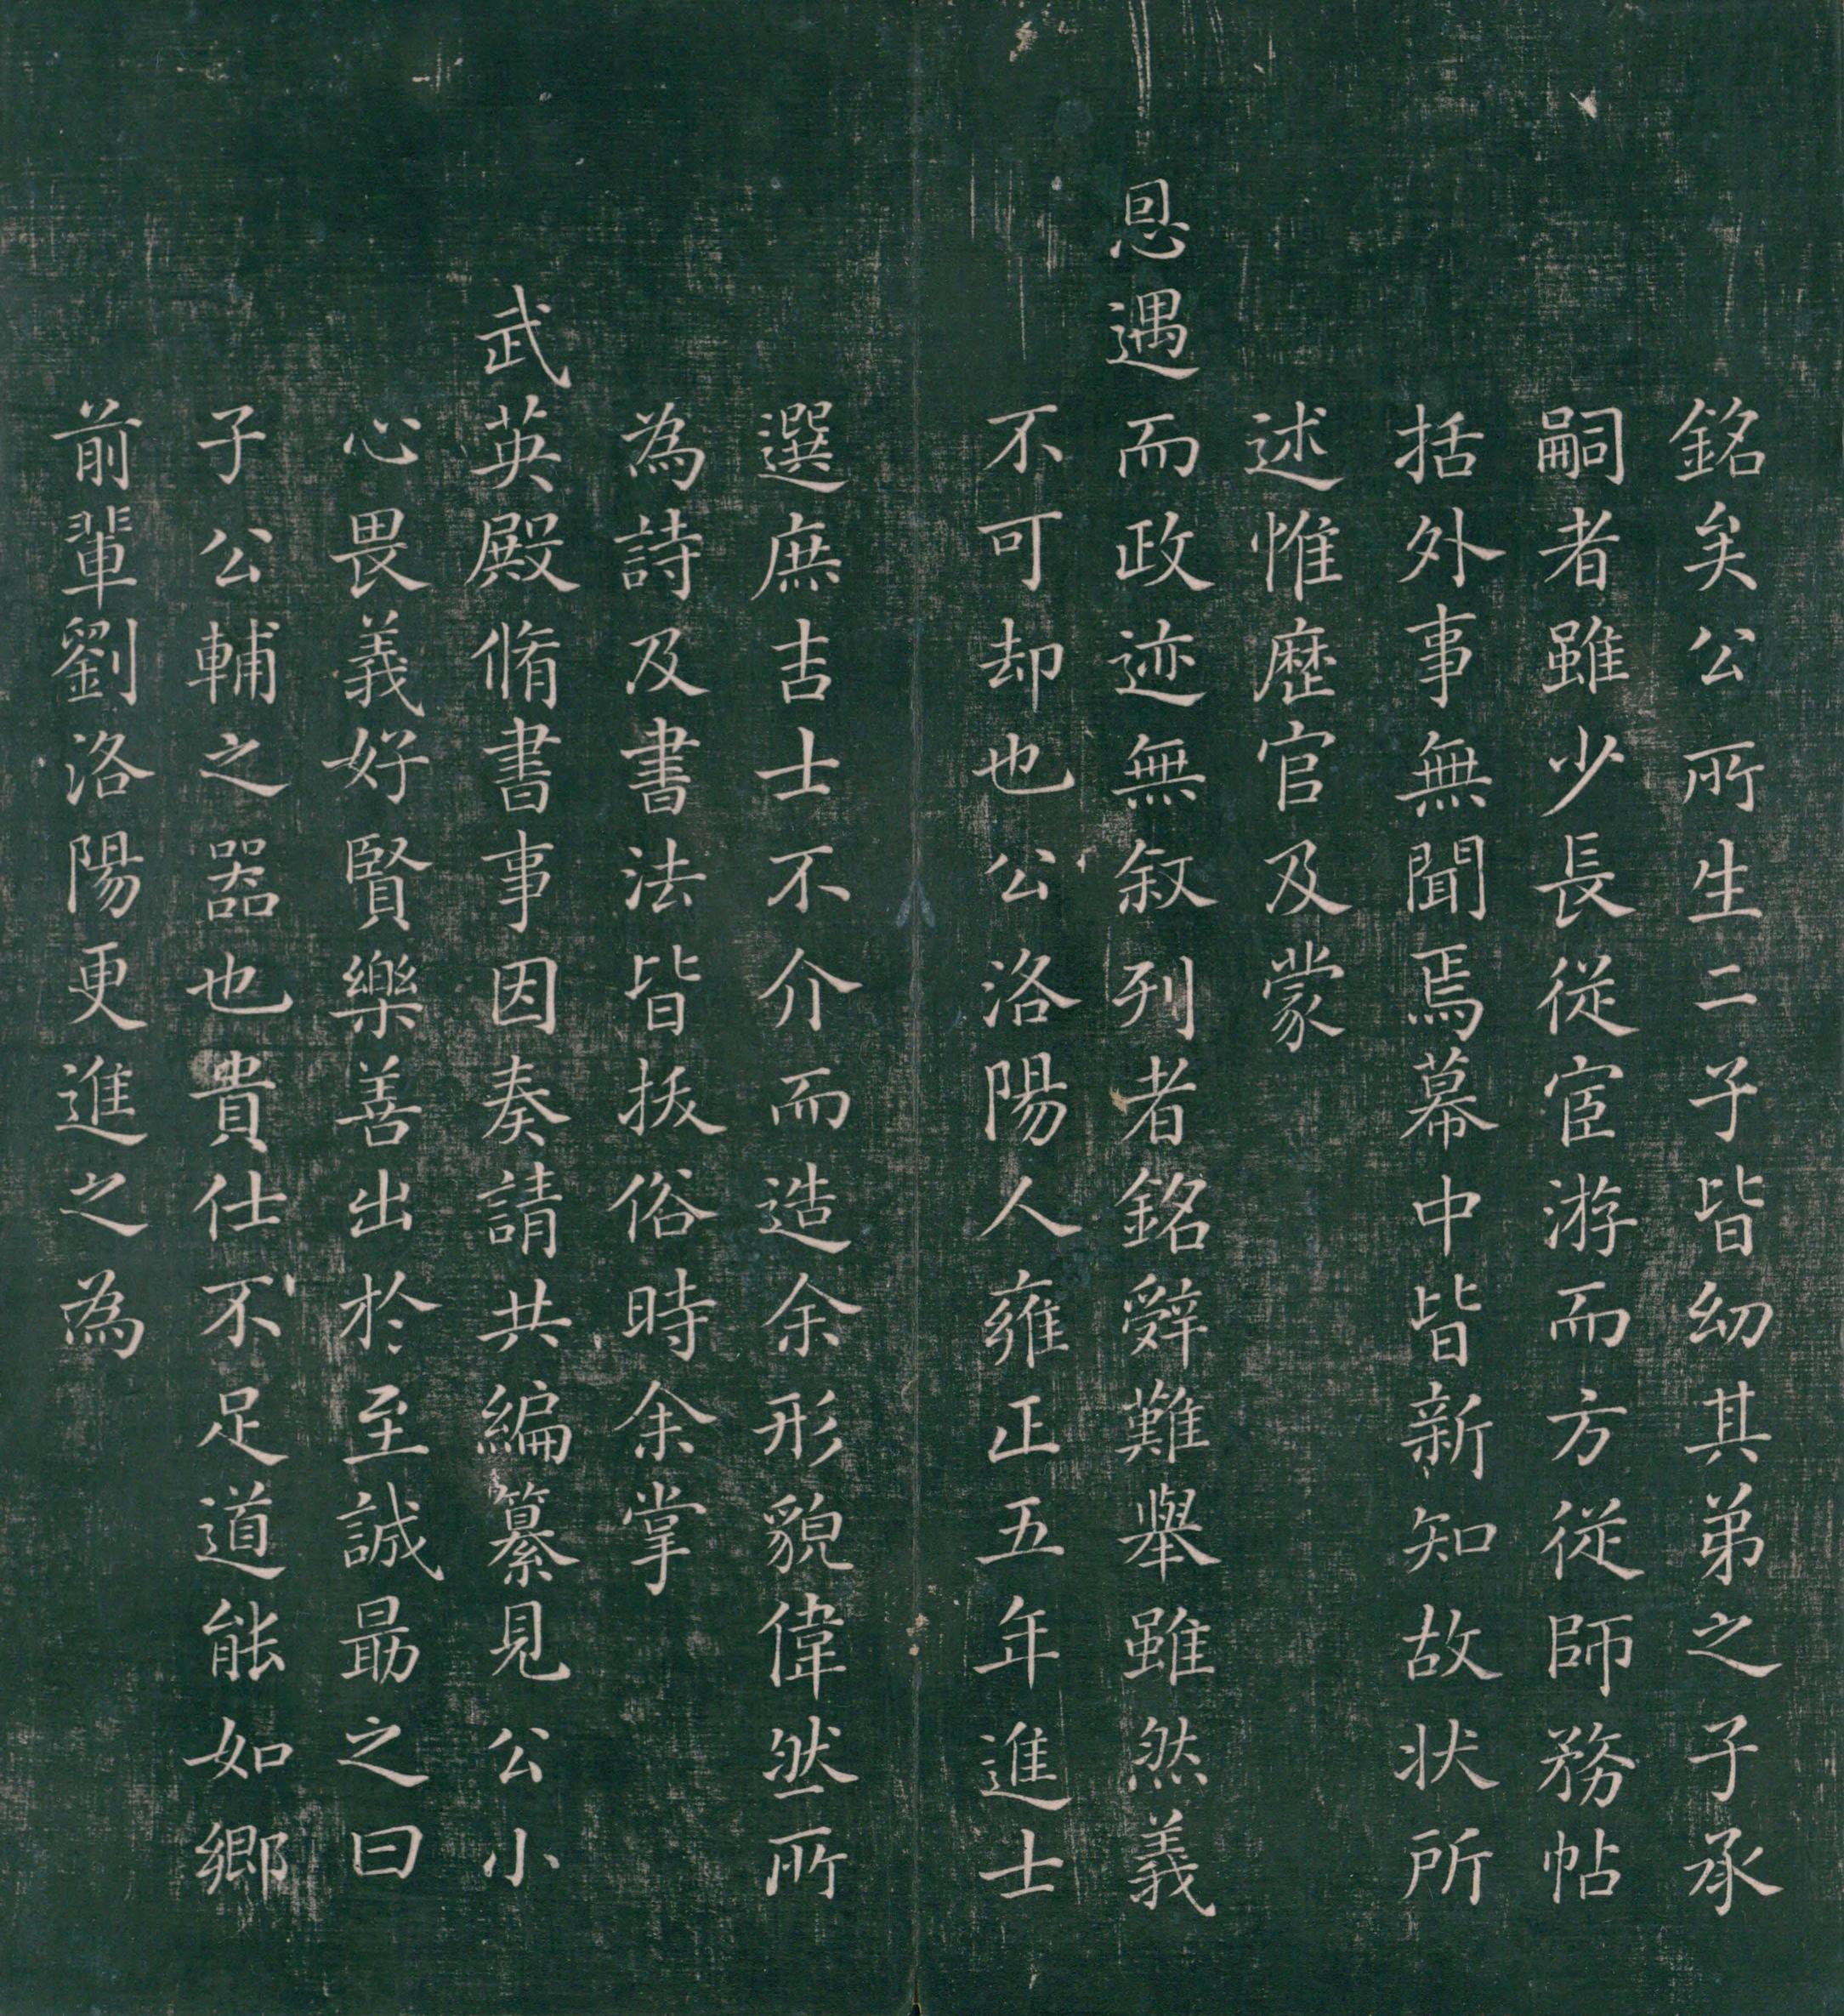 銘矣公所生二子皆幼其弟之子承
嗣者雖少長從宦游而方從師務帖
括外事無聞焉幕中皆新知故状所
述惟歷官及蒙
恩遇而政迹無叙列者銘辤難舉雖然義
不可却也公洛陽人雍正五年進士
選庶吉士不介而造余形貌偉然所
為詩及書法皆拔俗時余掌
武英殿脩書事因奏請共編纂見公小
心畏義好賢樂善出於至誠朂之曰
子公輔之器也貴仕不足道能如鄉
前輩劉洛陽更進之為